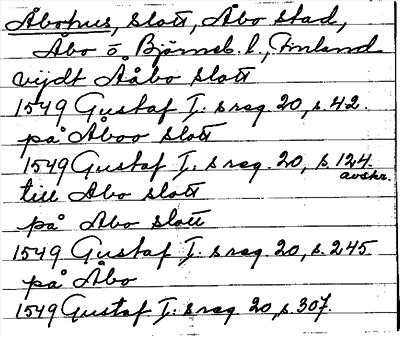 Åbohus, slott, Åbo stad,
Åbo o Björneb. l., Finland
vijdt Ååbo slott
1549 Gustaf I:s reg. 20, s. 42.
på Åboo slott
1549 Gustaf I:s reg. 20, s. 124.
avskr.
till Åbo slott
på Åbo slott
1549 Gustaf I:s reg. 20, s. 245.
på Åbo
1549 Gustaf I:s reg. 20, s. 307.